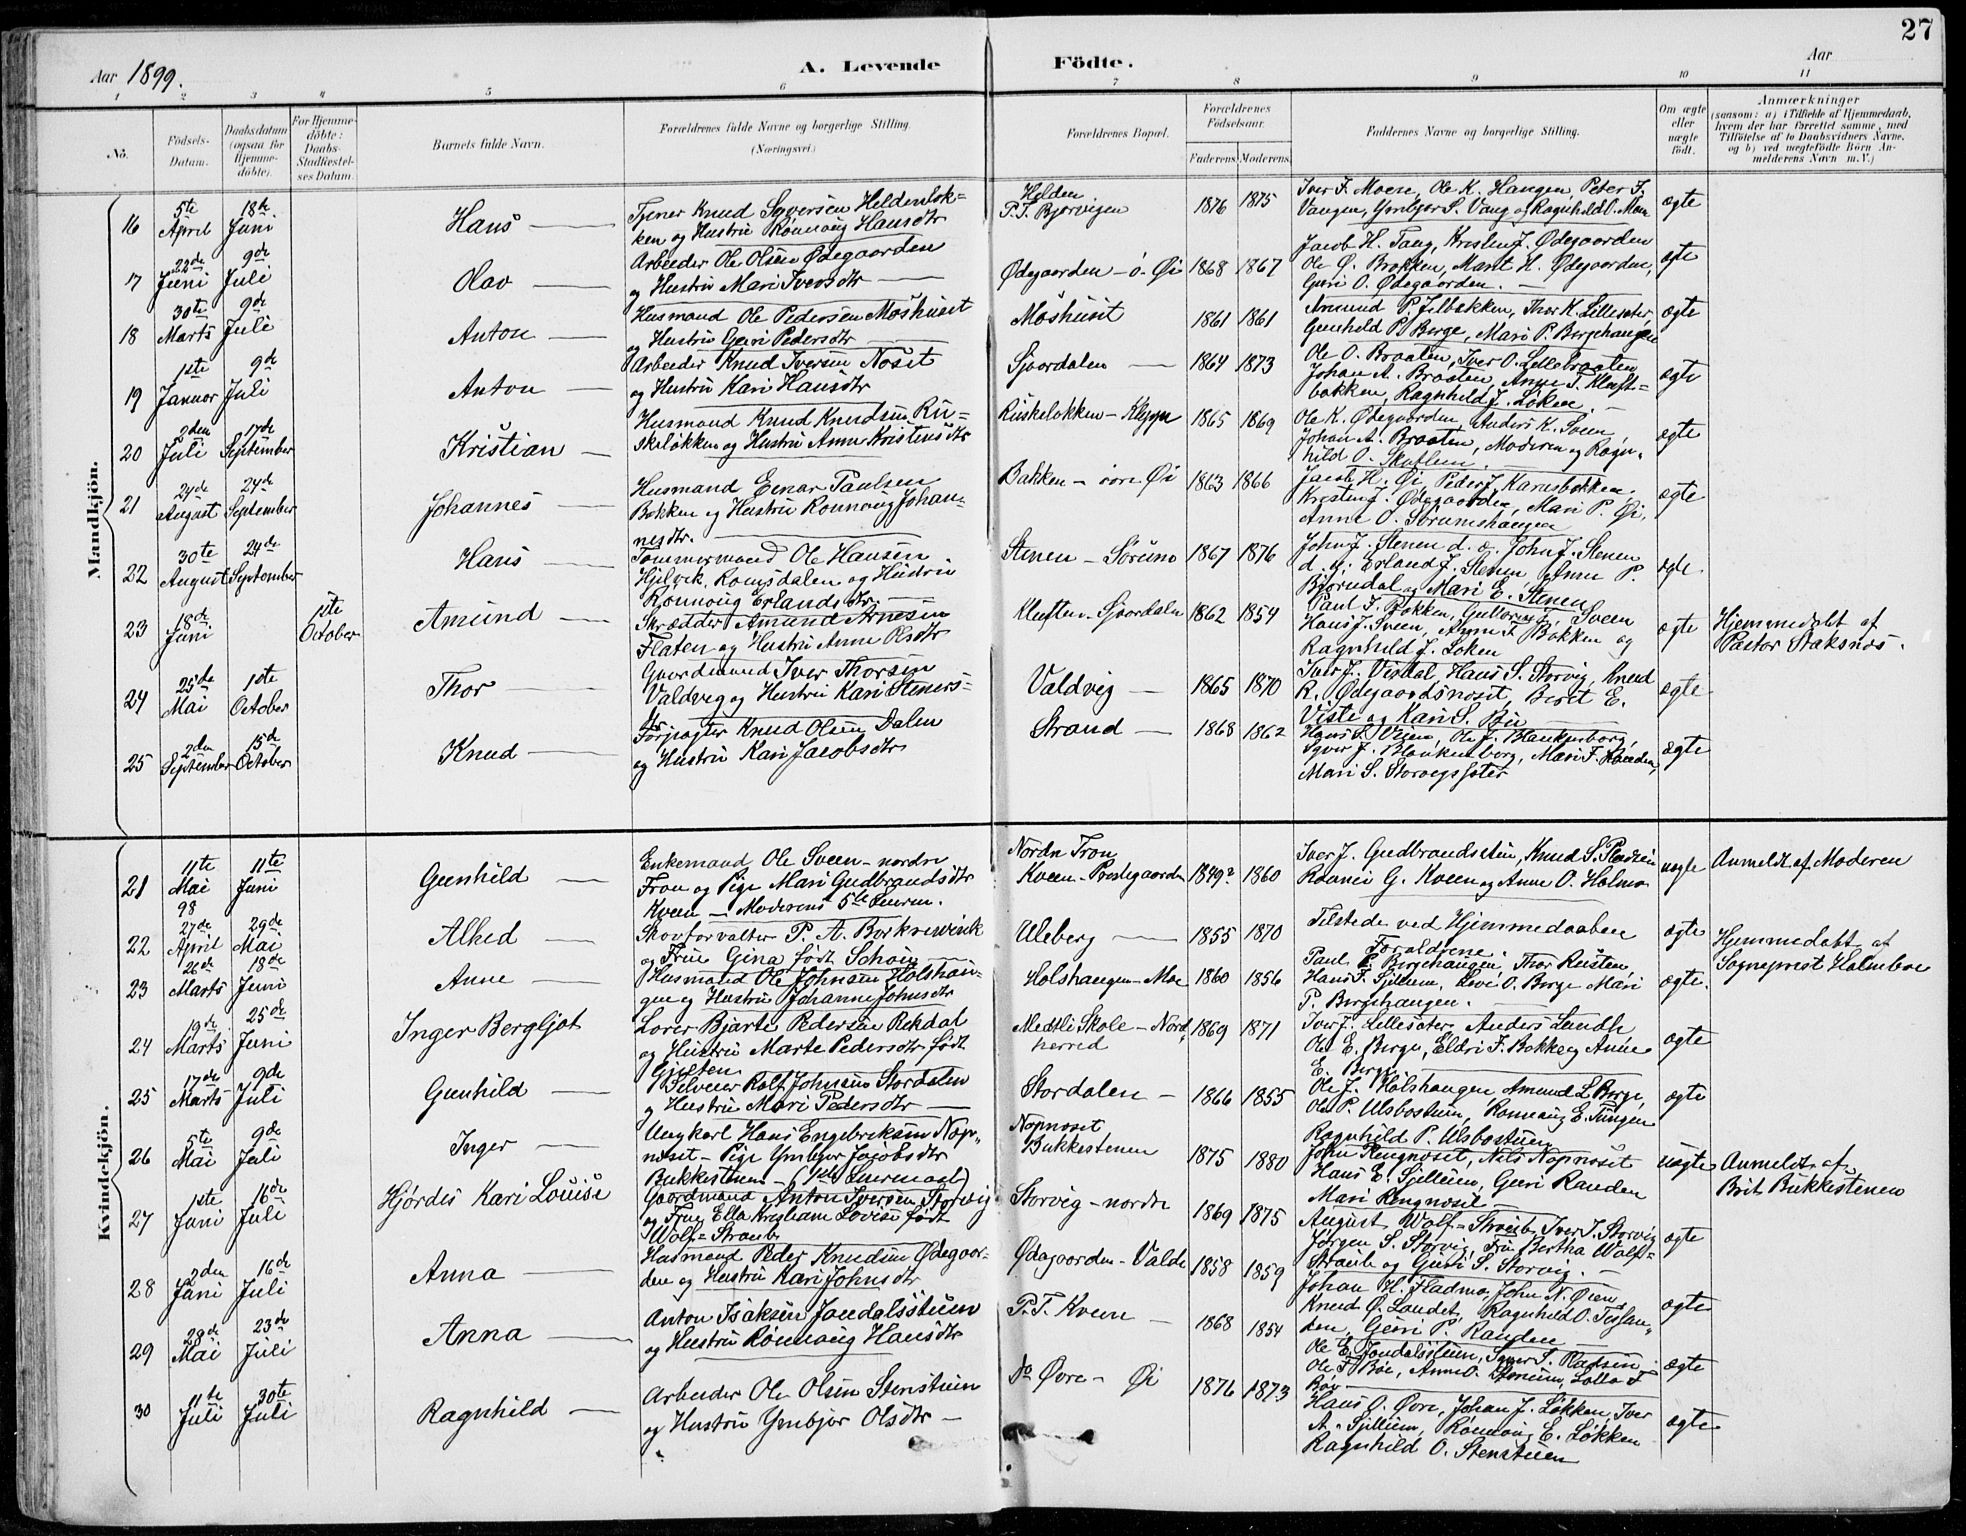 27
Aar 1899.
A. Levende Födte.
Aar
1 2 3 4 5 6 7 8 9 10 11
No.
Födsels-Datum.
Daabsdatum (ogsaa for Hjemme-döbte).
For Hjemme-döbte: Daabs-Stadfæstel-ses Datum.
Barnets fulde Navn.
Forældrenes fulde Navne og borgerlige Stilling.
(Næringsvei.)
Forældrenes Bopæl.
Forældrenes Födselsaar.
Faderens. Moderens.
Faddernes Navne og borgerlige Stilling.
Om ægte eller uægte födt.
Anmærkninger
(saasom: a) i Tilfælde af Hjemmedaab, hvem der har forrettet samme, med Tilföielse af to Daabsvidners Navne, og b) ved uægtefödte Börn An-melderens Navn m. V.)
Mandkjön.
16 5te April 18de Juni Hans
Tjener Knud Syversen Heldenlok-
ken og Hustru Rønnoug Hansdtr
Helden
P.T. Bjorvigen 1876 1875
Iver F. Moene, Ole K. Haugen, Peter F.
Vangen, Ymbjor S. Vang og Ragnhild O. Moen
ægte
17 22de Juni 9de Juli Olav
Arbeider Ole Olsen Ødegaarden
og Hustru Mari Iversdtr
Ødegaarden - ö. Øi 1868 1867
Jacob H. Tang, Kristen J. Ødegaarden
Ole Ø. Brokken, Marit H. Ødegaarden,
Guri O. Ødegaarden.
ægte
18 30te Marts 9de Juli Anton
Husmand Ole Pedersen Moshuset
og Hustru Guri Pedersdtr
Moshuset 1861 1861
Amund P. Jelbakken, Thor K. Lillesæter,
Gunhild P. Berge, Mari P. Bergehaugen
ægte
19 1ste Januar 9de Juli Anton
Arbeider Knud Iversen Noset
og Hustru Kari Hansdtr
Sjoardalen 1864 1873
Ole O. Braaten, Iver O. Lillebraaten
Johan A. Braaten, Anne T. Kleft-
bakken, Ragnhild J. Løken.
ægte
20 2den Juli 17de September Kristian
Husmand Knud Knudsen Ru-
skeløkken og Hustru Anne Kristensdtr
Ruskeløkken - Klypn 1865 1869
Ole K. Ødegaarden, Anders K. Sveen,
Johan A. Braaten, Moderen og Ragn-
hild O. Skutlien.
ægte
21 24de August 24de September Johannes
Husmand Einar Paulsen
Bakken og Hustru Ronnoug Johan-
nesdtr.
Bakken - søre Øi 1863 1866
Jacob H. Øi, Peder J. Kamsbakken,
Kristen J. Ødegaarden, Mari P. Øi,
Anne O. Sørumshaugen
ægte
22 30te August 24de September Hans
Tømmermand Ole Hansen
Hjelvik, Romsdalen og Hustru
Ronnoug Erlandsdtr.
Stenen - Sørum 1867 1876
John J. Stenen d. æ. John J. Stenen
d. y. Erland J. Stenen, Anne P.
Bjørndal og Mari E. Stenen
ægte.
23 18de Juni 1ste October Amund
Skrædder Amund Arnesen
Flaten og Hustru Anne Olsdtr
Kleften - Sjoardalen 1862 1854
Paul F. Bakken, Sveen
Hans J. Sveen, Anne F. Bakken og
Ragnhild J. Loken
ægte
Hjemmedøbt af
Pastor Staksnæs.
24 25de Mai 1ste October Thor
Gaardmand Iver Thorsen
Valdvig og Hustru Kari Steners-
dtr
Valdvig 1865 1870
Iver J. Visdal, Hans S. Storvig, Knud
R. Ødegaardsnoset, Berit E.
Viste og Kari S. Bu
ægte
25 2den September 15de October Knud
Forpagter Knud Olsen Dalen
og Hustru Kari Jacobsdtr
Strand 1868 1862
Hans S. Veien, Ole J. Blankenborg,
Syver J. Blankenborg, Mari F. Randen,
Mari S. Storvigsæter
ægte
Kvindekjön.
21 11te Mai 98 11te Juni Gunhild
Enkemand Ole Sveen - nordre
Fron og Pige Mari Gudbrandsdtr
Kveen - Moderens 5te Leierm.
Nordre Fron
Kveen - Prestegaarden 1849? 1860
Iver J. Gudbrandsstuen, Knud S. Pladsen
G. Kveen og Anne O. Holmo
uægte
Anmeldt af Moderen
22 27de April 29de Mai Alhed
Skovforvalter P. A. Borkrevink
og Frue Gina født Schøin
Uleberg 1855 1870
Tilstede ved Hjemmedaaben
Forældrene.
ægte
Hjemmedøbt af
Sogneprest Holmboe
23 26de Marts 18de Juni Anne
Husmand Ole Johnsen Holshau-
gen og Hustru Johanne Johnsdtr
Holshaugen - Moe 1860 1856
Paul P. Bergehaugen, Thor Rusten,
Hans F. Sjellum, Live O. Berge Mari
P. Bergshaugen.
ægte.
24 19de Marts 25de Juni Inger Bergljot
Lærer Bjarte Pedersen Rekdal
og Hustru Marte Pedersdtr født
Graften
Medtli Skole - Nord-
herred 1869 1871
Iver J. Lillesæter, Anders Landh
Ole E. Berge, Eldri F. Bakke og Anne
E. Berge
ægte
25 17de Marts 9de Juli Gunhild
Selveier Rolf Johnsen Stordalen
og Hustru Mari Pedersdtr
Stordalen 1866 1855
Ole J. Holshaugen, Amund L. Berge,
Ole P. Ulsbostuen, Ronnaug E. Tungen
Ragnhild P. Ulsbostuen
ægte
26 5te Mai 9de Juli Inger
Ungkarl Hans Engebriktsen Nop-
noset - Pige Ymbjør Jacobsdtr
Bukkestenen - (1ste Leiermaal)
Nopnoset
Bukkestenen 1875 1880
John Rengnoset, Nils Nopnoset
Hans E. Sjellum, Guri Randen
Mari Rengnoset
uægte
Anmeldt af
Brit Bukkestenen
27 1ste Juni 16de Juli Hjørdis Kari Louise
Gaardmand Anton Iversen Storvig
og Frue Ella Kristiane Lovise født
Wolf-Straub
Storvig - nordre 1869 1875
August Wolf-Straub, Iver I. Storvig
Jørgen S. Storvig, Fru Bertha Wolf-
Straub og Guri S. Storvig.
ægte
28 2den Juni 16de Juli Anna
Husmand Peder Knudsen Ødegaar-
den og Hustru Kari Johnsdtr
Ødegaarden - Valde 1858 1859
Johan H. Fladmo, John N. Øien,
Knud Ø. Landet, Ragnhild O. Tessan-
den, Guri P. Randen
ægte
29 28de Mai 23de Juli Anna
Anton Isaksen Jondalsstuen
og Hustru Rønnaug Hansdtr
P.T. Kveen 1868 1854
Ole E. Jondalsstuen, Syver S. Pladsen
Ole F. Bøe, Anne O. Stenum, Lotta F
Bøe
ægte
30 11te Juli 30te Juli Ragnhild
Arbeider Ole Olsen Stenstuen
og Hustru Ymbjør Olsdtr
do Øvre - Øi 1876 1873
Hans O. Øvre, Johan J. Løkken, Iver
A. Sjellum, Rønnaug E. Løkken
Ragnhild O. Stenstuen
ægte